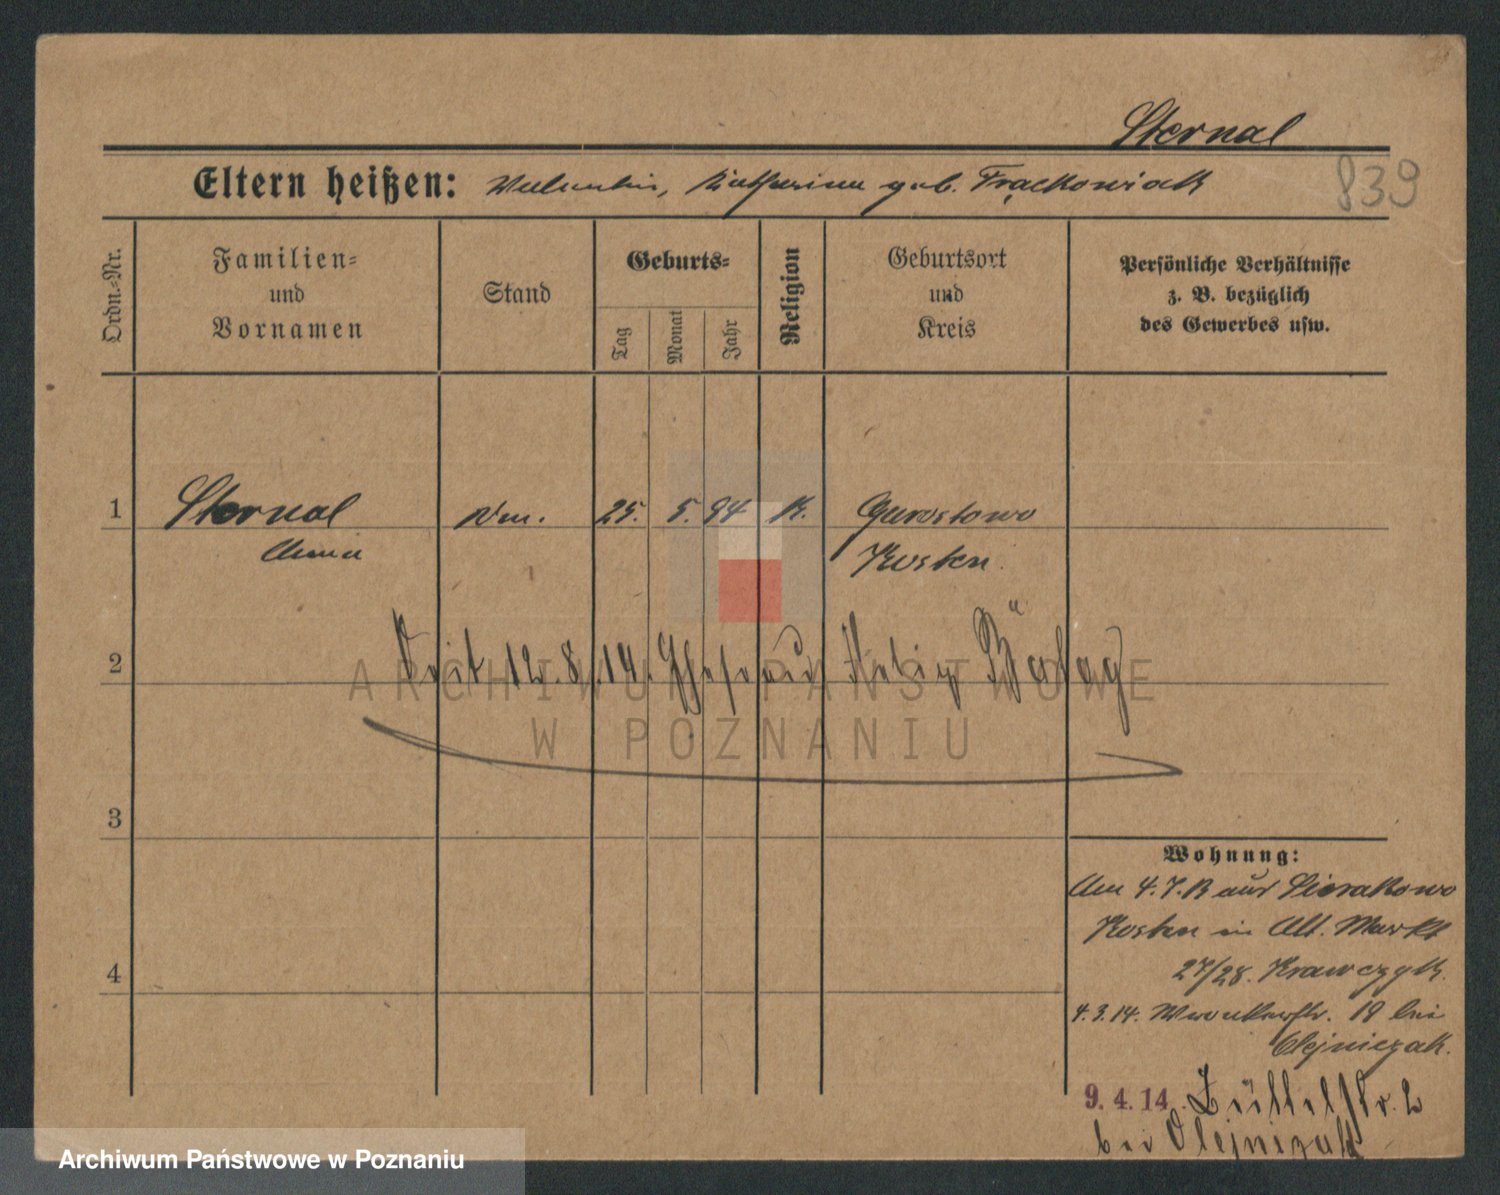 Sternal
839
Eltern heißen: Valentin, Katharina geb. Frąckowiak
Ordn.-Nr.
Familien-
und
Vornamen
Stand
Geburts-
Tag
Monat
Jahr
Religion
Geburtsort
und
Kreis
Persönliche Verhältnisse
z. B. bezüglich
des Gewerbes usw.
1 Sternal 25. 5. 94 K. Gurostowo
Anna Kosten.
2
Seit 12. 8. 14. Ehefrau
ARCHIWUM PAŃSTWOWE
W POZNANIU
3
Wohnung:
Am 4.7.13 aus Sierakowo
Kosten in Alt. Markt
27/28. Krawczyk.
4
4.3.14. Wronkerstr. 19 bei
Olejniczak.
9.4.14. Büttelstr. 2
bei Olejniczak
Archiwum Państwowe w Poznaniu